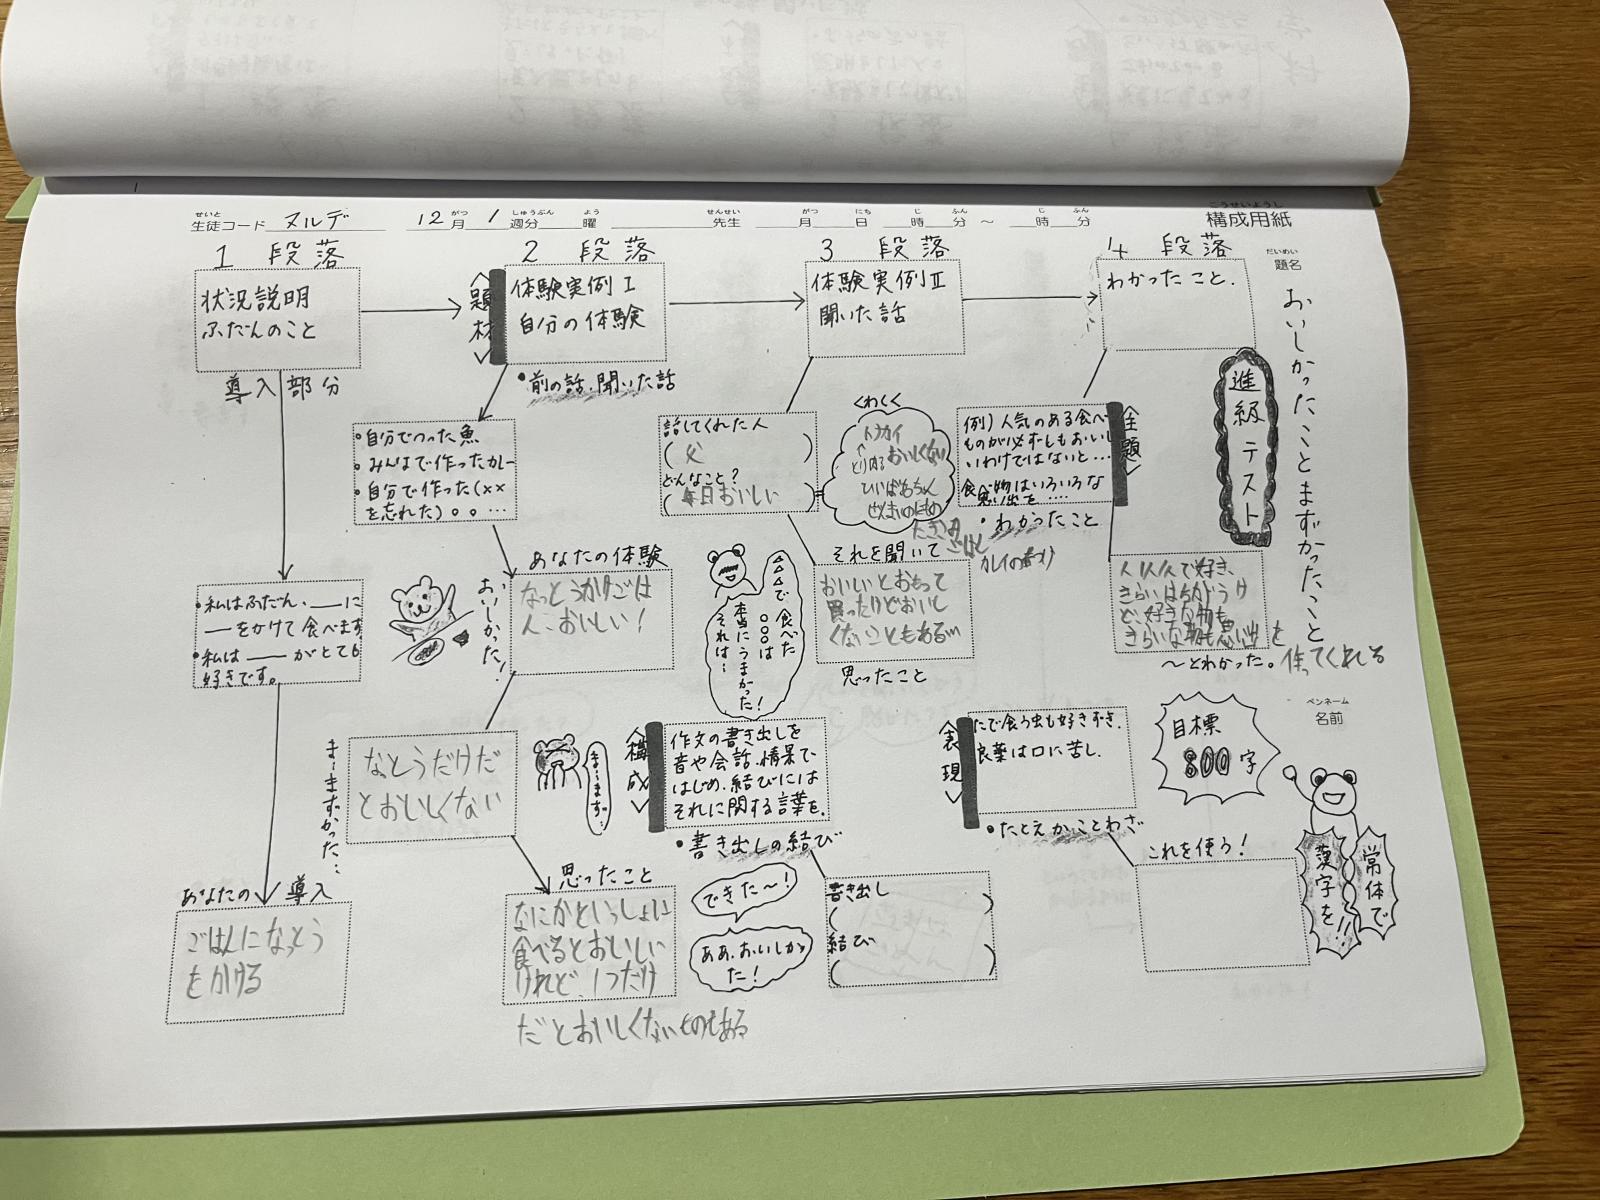 構成用紙
こうせいようし
生徒コード ヌルデ 12月 1週分 曜 先生 月 日 時 分 ～ 時 分
せいと がつ しゅうぶん よう せんせい がつ にち じ ふん じ ふん
題名
だいめい
おいしかったことまずかったこと
進級テスト
1 段落
状況説明
ふだんのこと
導入部分
・私はふだん、――に
――をかけて食べます
・私は――がとても
好きです。
あなたの導入
ごはんになっとう
をかける
2 段落
〈題材〉
体験実例Ⅰ
自分の体験
・前の話、聞いた話
・自分でつった魚
・みんなで作ったカレー
・自分で作った(××
を忘れた)○○…
あなたの体験
おいしかった!
なっとうかけごは
ん、おいしい!
まーまずかった…
なっとうだけだ
とおいしくない
まーまずっ…
思ったこと
なにかといっしょに
食べるとおいしい
けれど、1つだけ
だとおいしくないものもある
3 段落
体験実例Ⅱ
聞いた話
話してくれた人
(父)
どんなこと?
(毎日おいしい)
くわしく
おいしくない
ひいばあちゃん
△△で食べた
○○○は
本当にうまかった!
それは…
それを聞いて
おいしいとおもって
買ったけどおいし
くないこともある
思ったこと
〈構成〉
作文の書き出しを
音や会話、情景で
はじめ、結びには
それに関する言葉を。
・書き出しの結び
できた～!
ああ、おいしかっ
た!
書き出し
( )
結び
( )
4 段落
わかったこと。
〈主題〉
例)人気のある食べ
ものが必ずしもおいし
いわけではないと…
食べ物はいろいろな
思い出を….
・わかったこと
カレイの
人1人1人で好き、
きらいはちがうけ
ど、好きな物も
きらいな物も思い出を
作ってくれる
～とわかった。
〈表現〉
たで食う虫も好きずき。
良薬は口に苦し。
・たとえか、ことわざ
これを使う!
ペンネーム
名前
目標
800字
常体で
漢字を!!